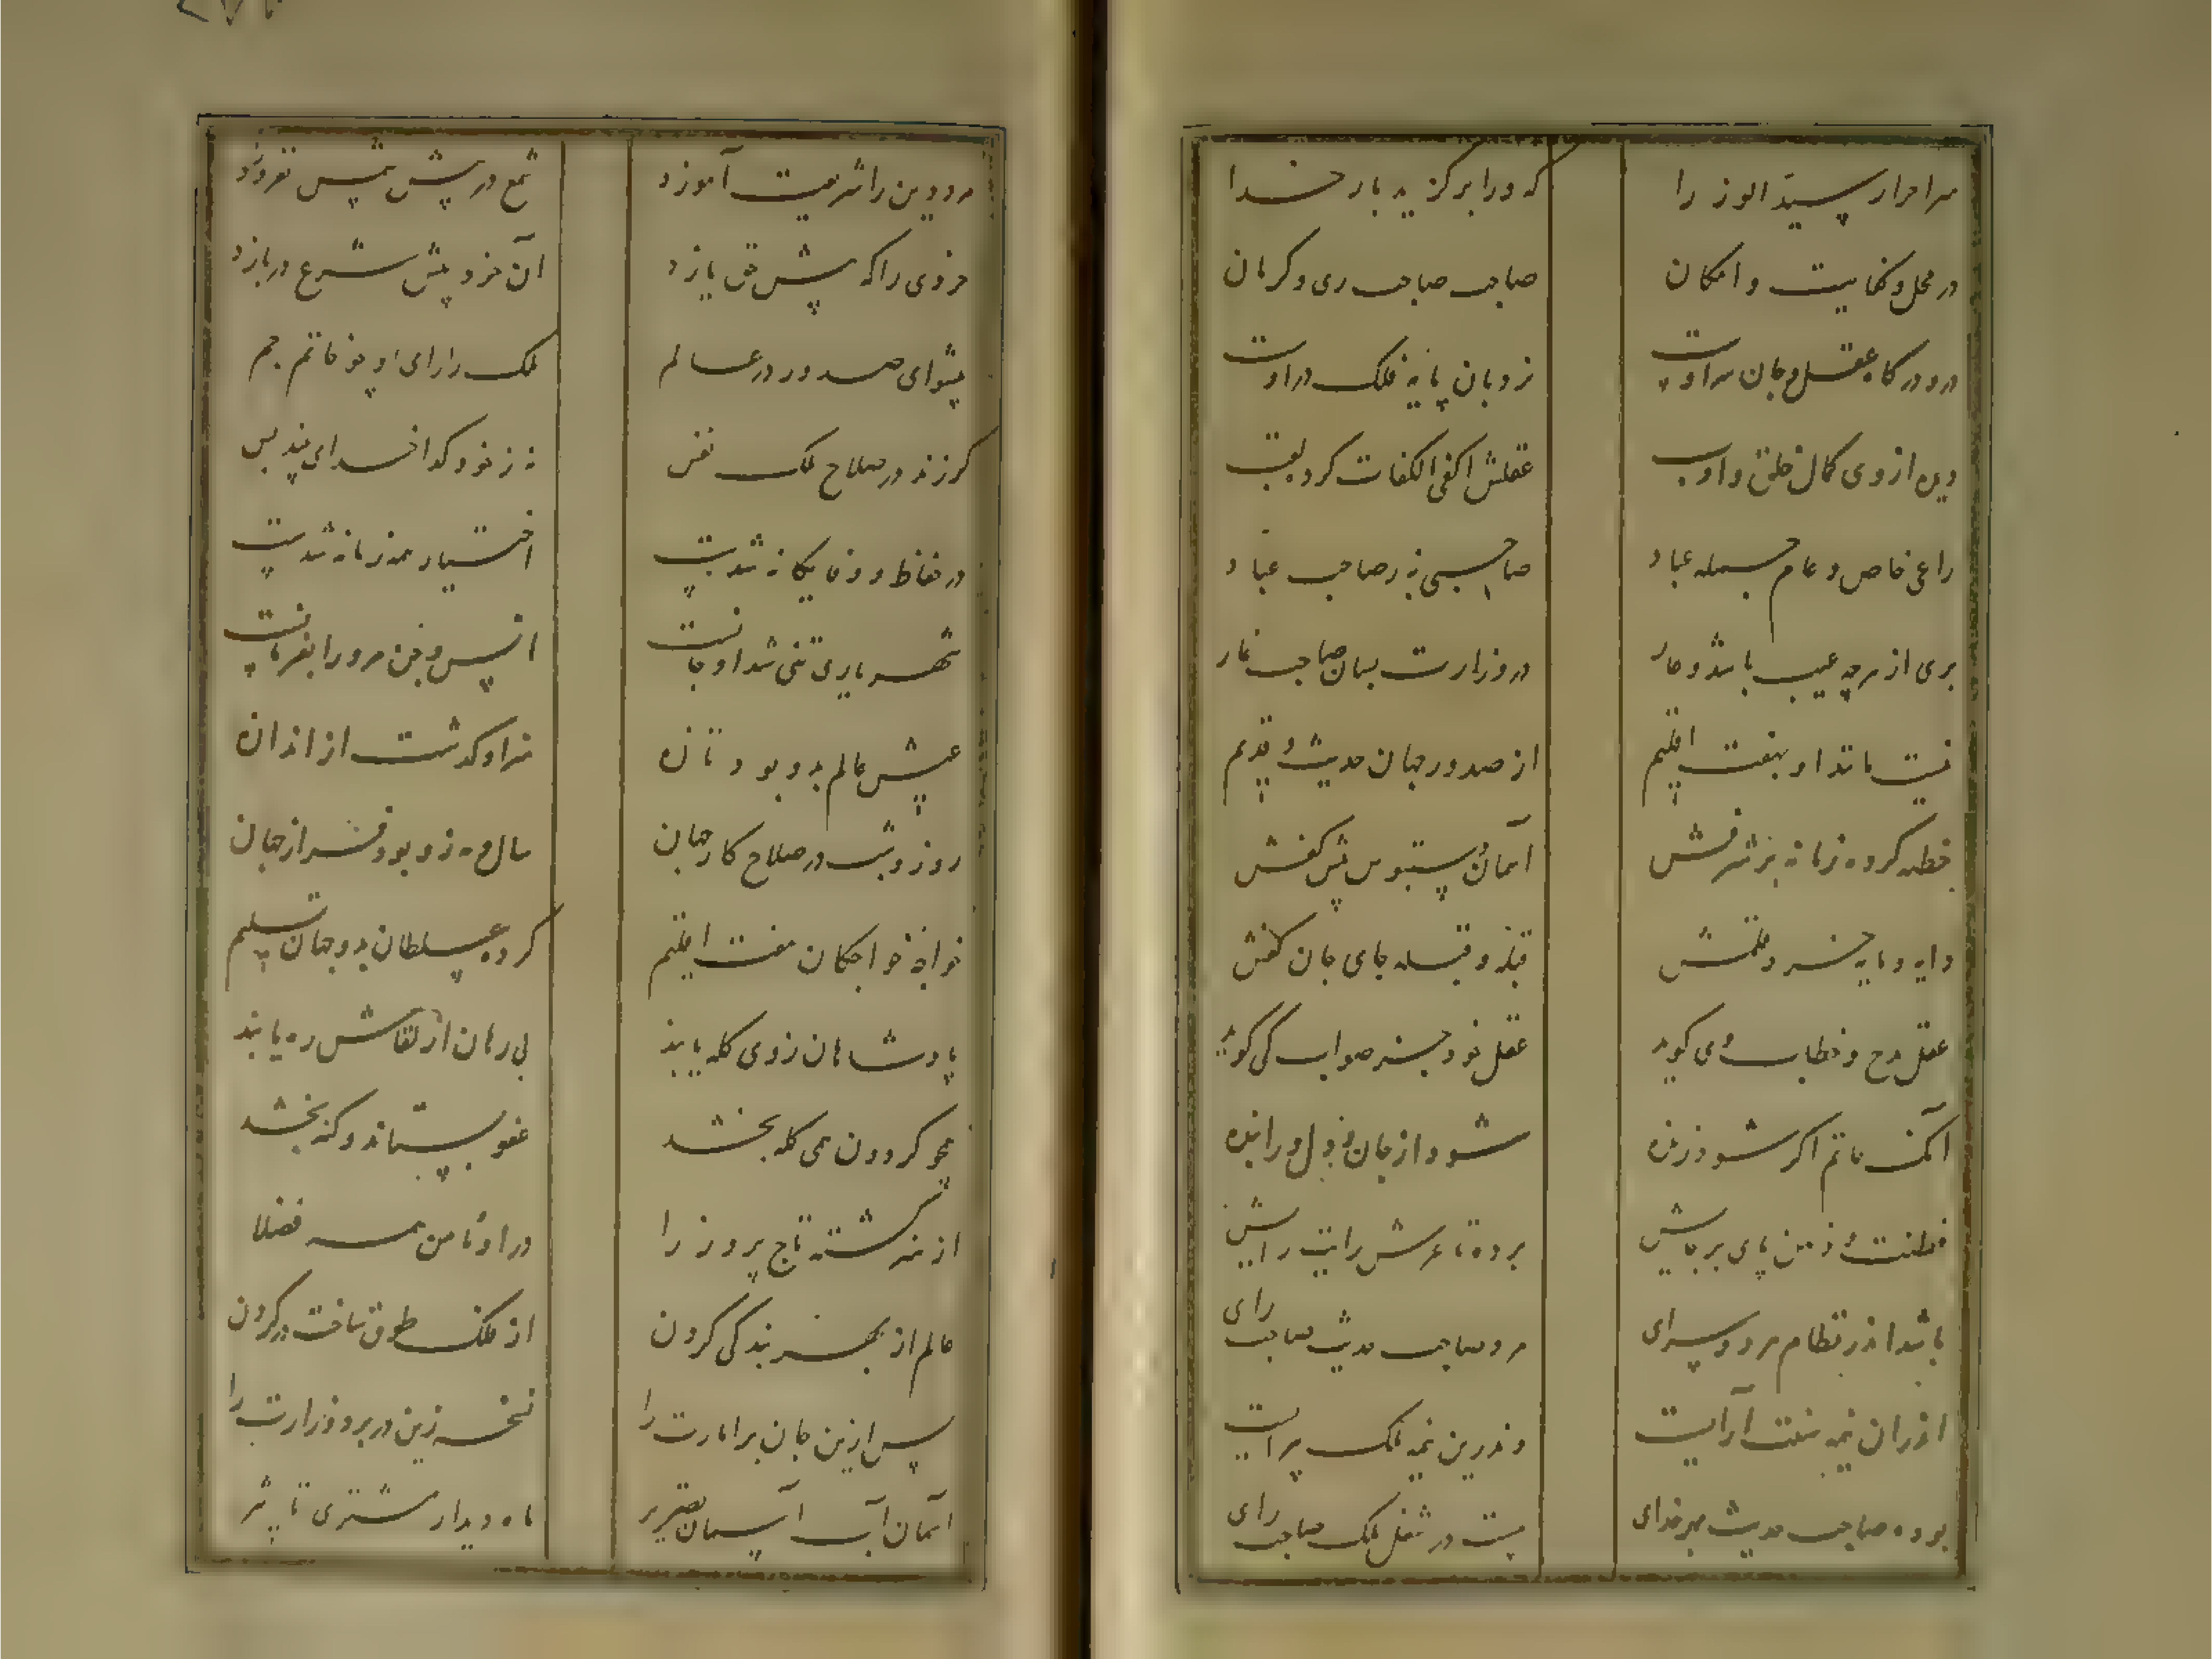 سر احرار سید الوزرا
که ورا برگزید بار خدا
در محل و کفایت و امکان
صاحب صاحب ری و کرمان
در درگاه عقل و جان سر اوست
نردبان پایه فلک در اوست
دیده از وی کمال خلق و ادب
عقلش اکفی الکفات کرده لقب
راعی خاص و عام جمله عباد
صاحبی نه ز صاحب عباد
بری از هرچه عیب باشد و عار
در وزارت بسان صاحب غار
نیست مانند او بهفت اقلیم
از صدور جهان حدیث و قدیم
خطبه کرده زمانه بر شرفش
آسمان دستبوس پیش کفش
دایه و مایه خرد
قبله و قبله جای جان کفش
عقل مدح و خطاب وی گوید
عقل خود جز صواب کی گوید
آنک حاتم اگر شود زنده
شود از جان و دل ورا بنده
فطنت و ذهن پای بر جایش
برده تا عرش رایت رایش
باشد اندر نظام هر دو سرای
مرد صاحب حدیث صاحب رای
اندران نیمه سنت آرایست
وندرین نیمه ملک پیرایست
بوده صاحب حدیث بهر خدای
هست در شغل ملک صاحب رای
مرد دین را شریعت آموزد
شمع در پیش شمس نفروزد
خردی را که پیش حق یازد
آن خرد پیش شرع دربازد
پیشوای صدور در عالم
ملک را رای او چو خاتم جم
گر زند در صلاح ملک نفس
نه ز خود کد خدای بیند بس
در حفاظ و وفا یگانه شدست
اختیار همه زمانه شدست
شهریاری تنی شد او جانست
انس و جن مر ورا بفرمانست
عیش عالم بدو بود تازه
هنر او گذشت از اندازه
روز و شب در صلاح کار جهان
سال و مه زو بود فراز جهان
خواجه خواجگان هفت اقلیم
کرده سلطان بدو جهان تسلیم
پادشاهان زوی کله یابند
بی رهان از لقاش ره یابند
همچو گردون همی کله بخشد
عفو بستاند و گنه بخشد
از هنر گشته تاج بر وزرا
در او مأمن همه فضلا
عالم از بهر بندگی کردن
از فلک طوق ساخت در گردن
پس ازین جان بر امارت را
نسخه زین در برد وزارت را
آسمان
ماه دیدار مشتری تأثیر